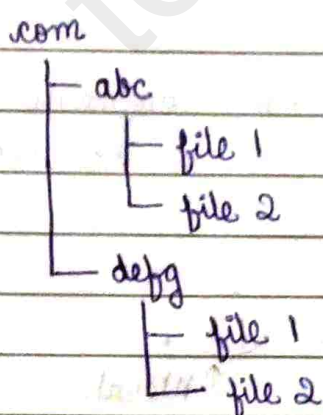 com
abc
file 1
file 2
defg
file 1
file 2